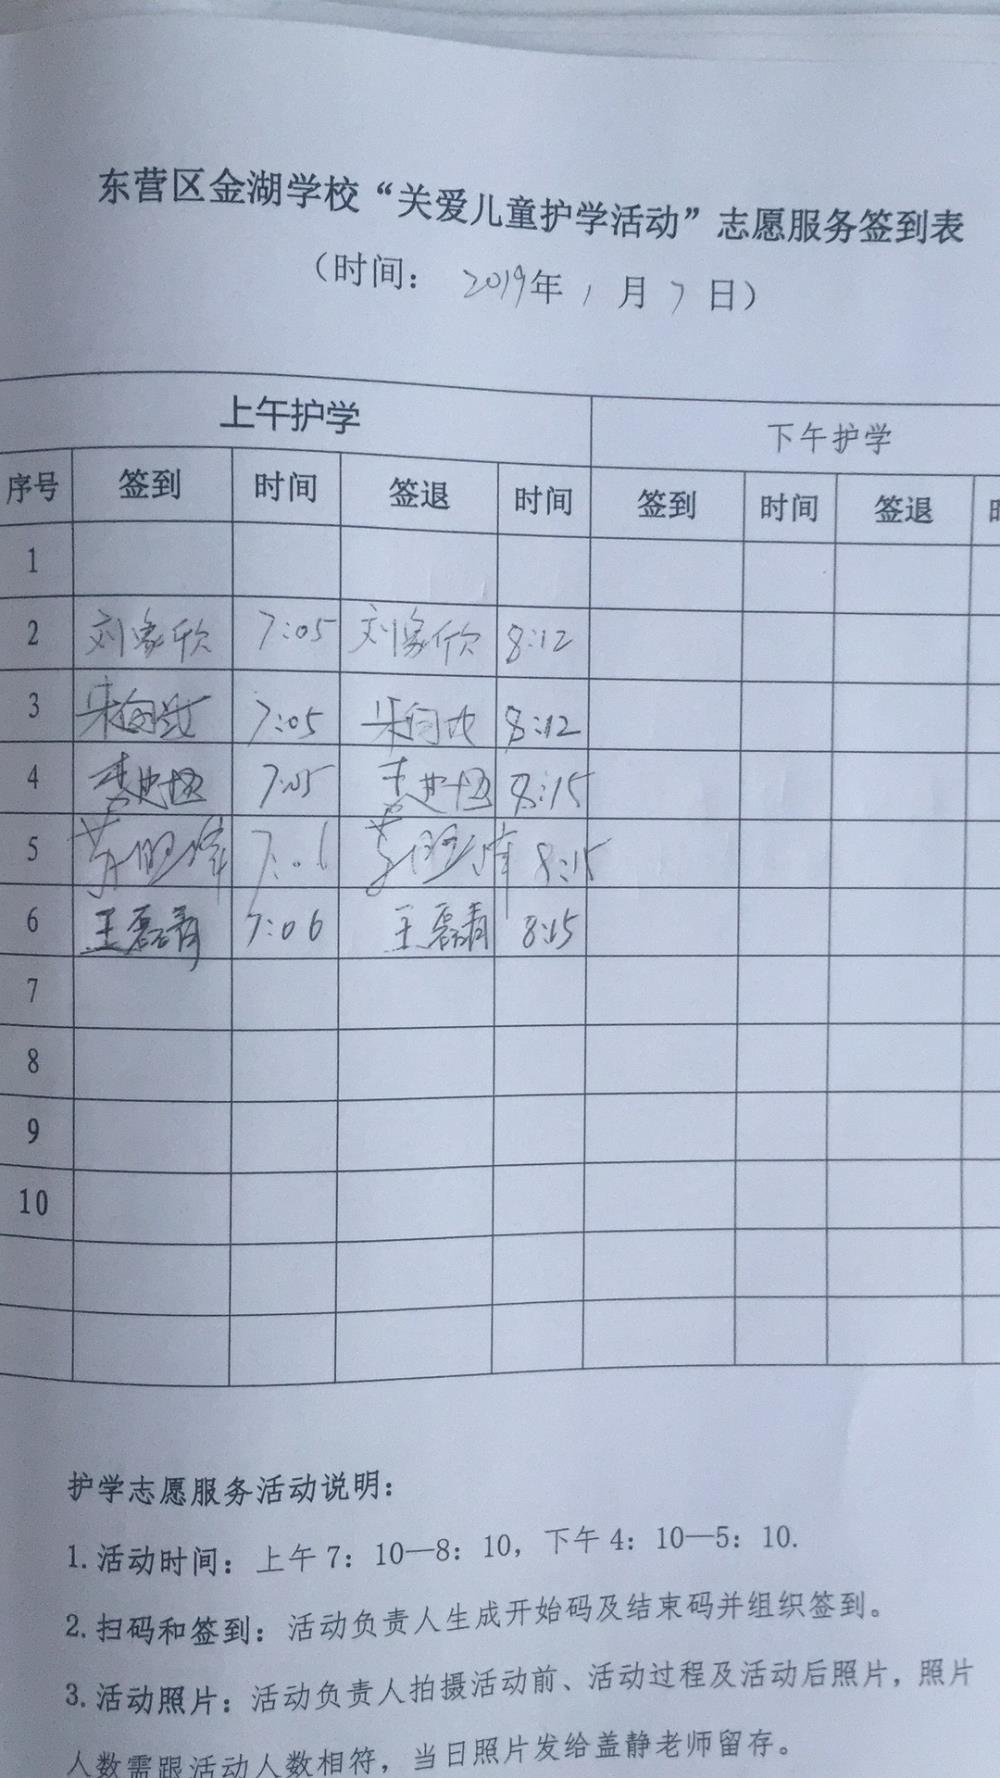 东营区金湖学校“关爱儿童护学活动”志愿服务签到表
（时间： 2019年 1 月 7 日）
上午护学 下午护学
序号 签到 时间 签退 时间 签到 时间 签退
1
2 刘家欣 7:05 刘家欣 8:12
3 7:05 8:12
4 7:05 8:15
5 8:15
6 王磊青 7:06 王磊青 8:15
7
8
9
10
护学志愿服务活动说明：
1.活动时间：上午7：10—8：10，下午4：10—5：10.
2.扫码和签到：活动负责人生成开始码及结束码并组织签到。
3.活动照片：活动负责人拍摄活动前、活动过程及活动后照片，照片
人数需跟活动人数相符，当日照片发给盖静老师留存。